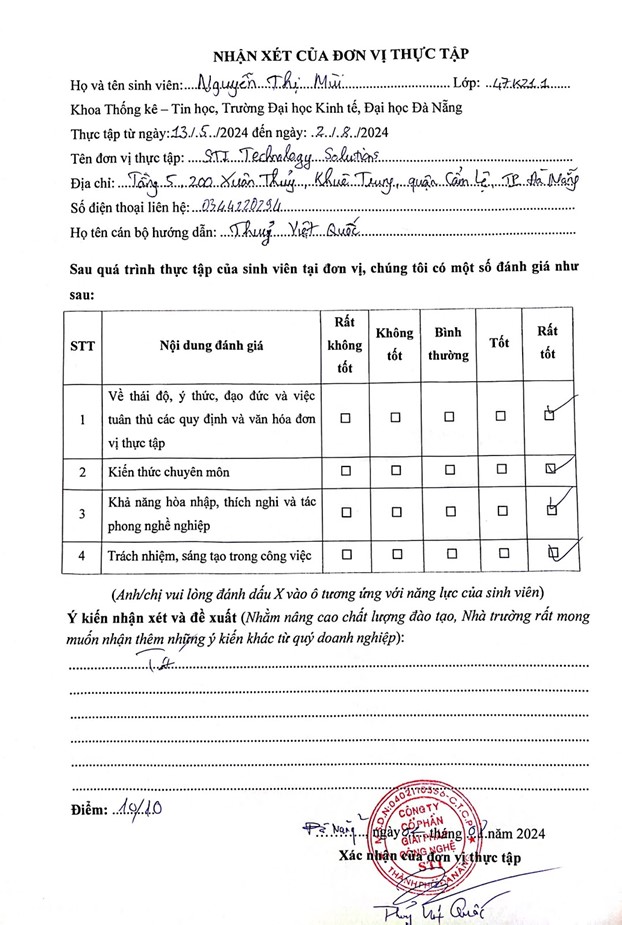 NHẬN XÉT CỦA ĐƠN VỊ THỰC TẬP
Họ và tên sinh viên: Nguyễn Thị Mùi Lớp: 47K21.1
Khoa Thống kê – Tin học, Trường Đại học Kinh tế, Đại học Đà Nẵng
Thực tập từ ngày: 13/5/2024 đến ngày: 2/8/2024
Tên đơn vị thực tập: STI Technology Solutions
Địa chỉ: Tầng 5, 200 Xuân Thuỷ, Khuê Trung, quận Cẩm Lệ, TP Đà Nẵng
Số điện thoại liên hệ: 0344220294
Họ tên cán bộ hướng dẫn: Thuỷ Việt Quốc
Sau quá trình thực tập của sinh viên tại đơn vị, chúng tôi có một số đánh giá như
sau:
STT Nội dung đánh giá Rất không tốt Không tốt Bình thường Tốt Rất tốt
1 Về thái độ, ý thức, đạo đức và việc
tuân thủ các quy định và văn hóa đơn
vị thực tập
2 Kiến thức chuyên môn
3 Khả năng hòa nhập, thích nghi và tác
phong nghề nghiệp
4 Trách nhiệm, sáng tạo trong công việc
(Anh/chị vui lòng đánh dấu X vào ô tương ứng với năng lực của sinh viên)
Ý kiến nhận xét và đề xuất (Nhằm nâng cao chất lượng đào tạo, Nhà trường rất mong
muốn nhận thêm những ý kiến khác từ quý doanh nghiệp):
Tốt
Điểm: 10/10
Đà Nẵng, ngày 02 tháng 08 năm 2024
Xác nhận của đơn vị thực tập
CÔNG TY
CỔ PHẦN
GIẢI PHÁP
CÔNG NGHỆ
STI
THÀNH PHỐ ĐÀ NẴNG
Thuỷ Việt Quốc